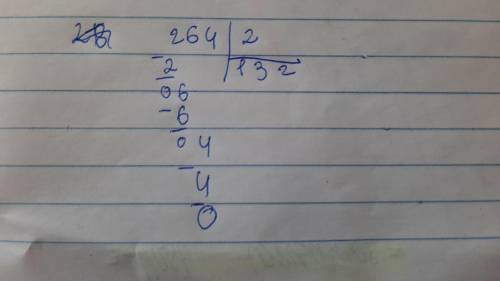 264 | 2
- 2 | 132
06
- 6
04
- 4
0